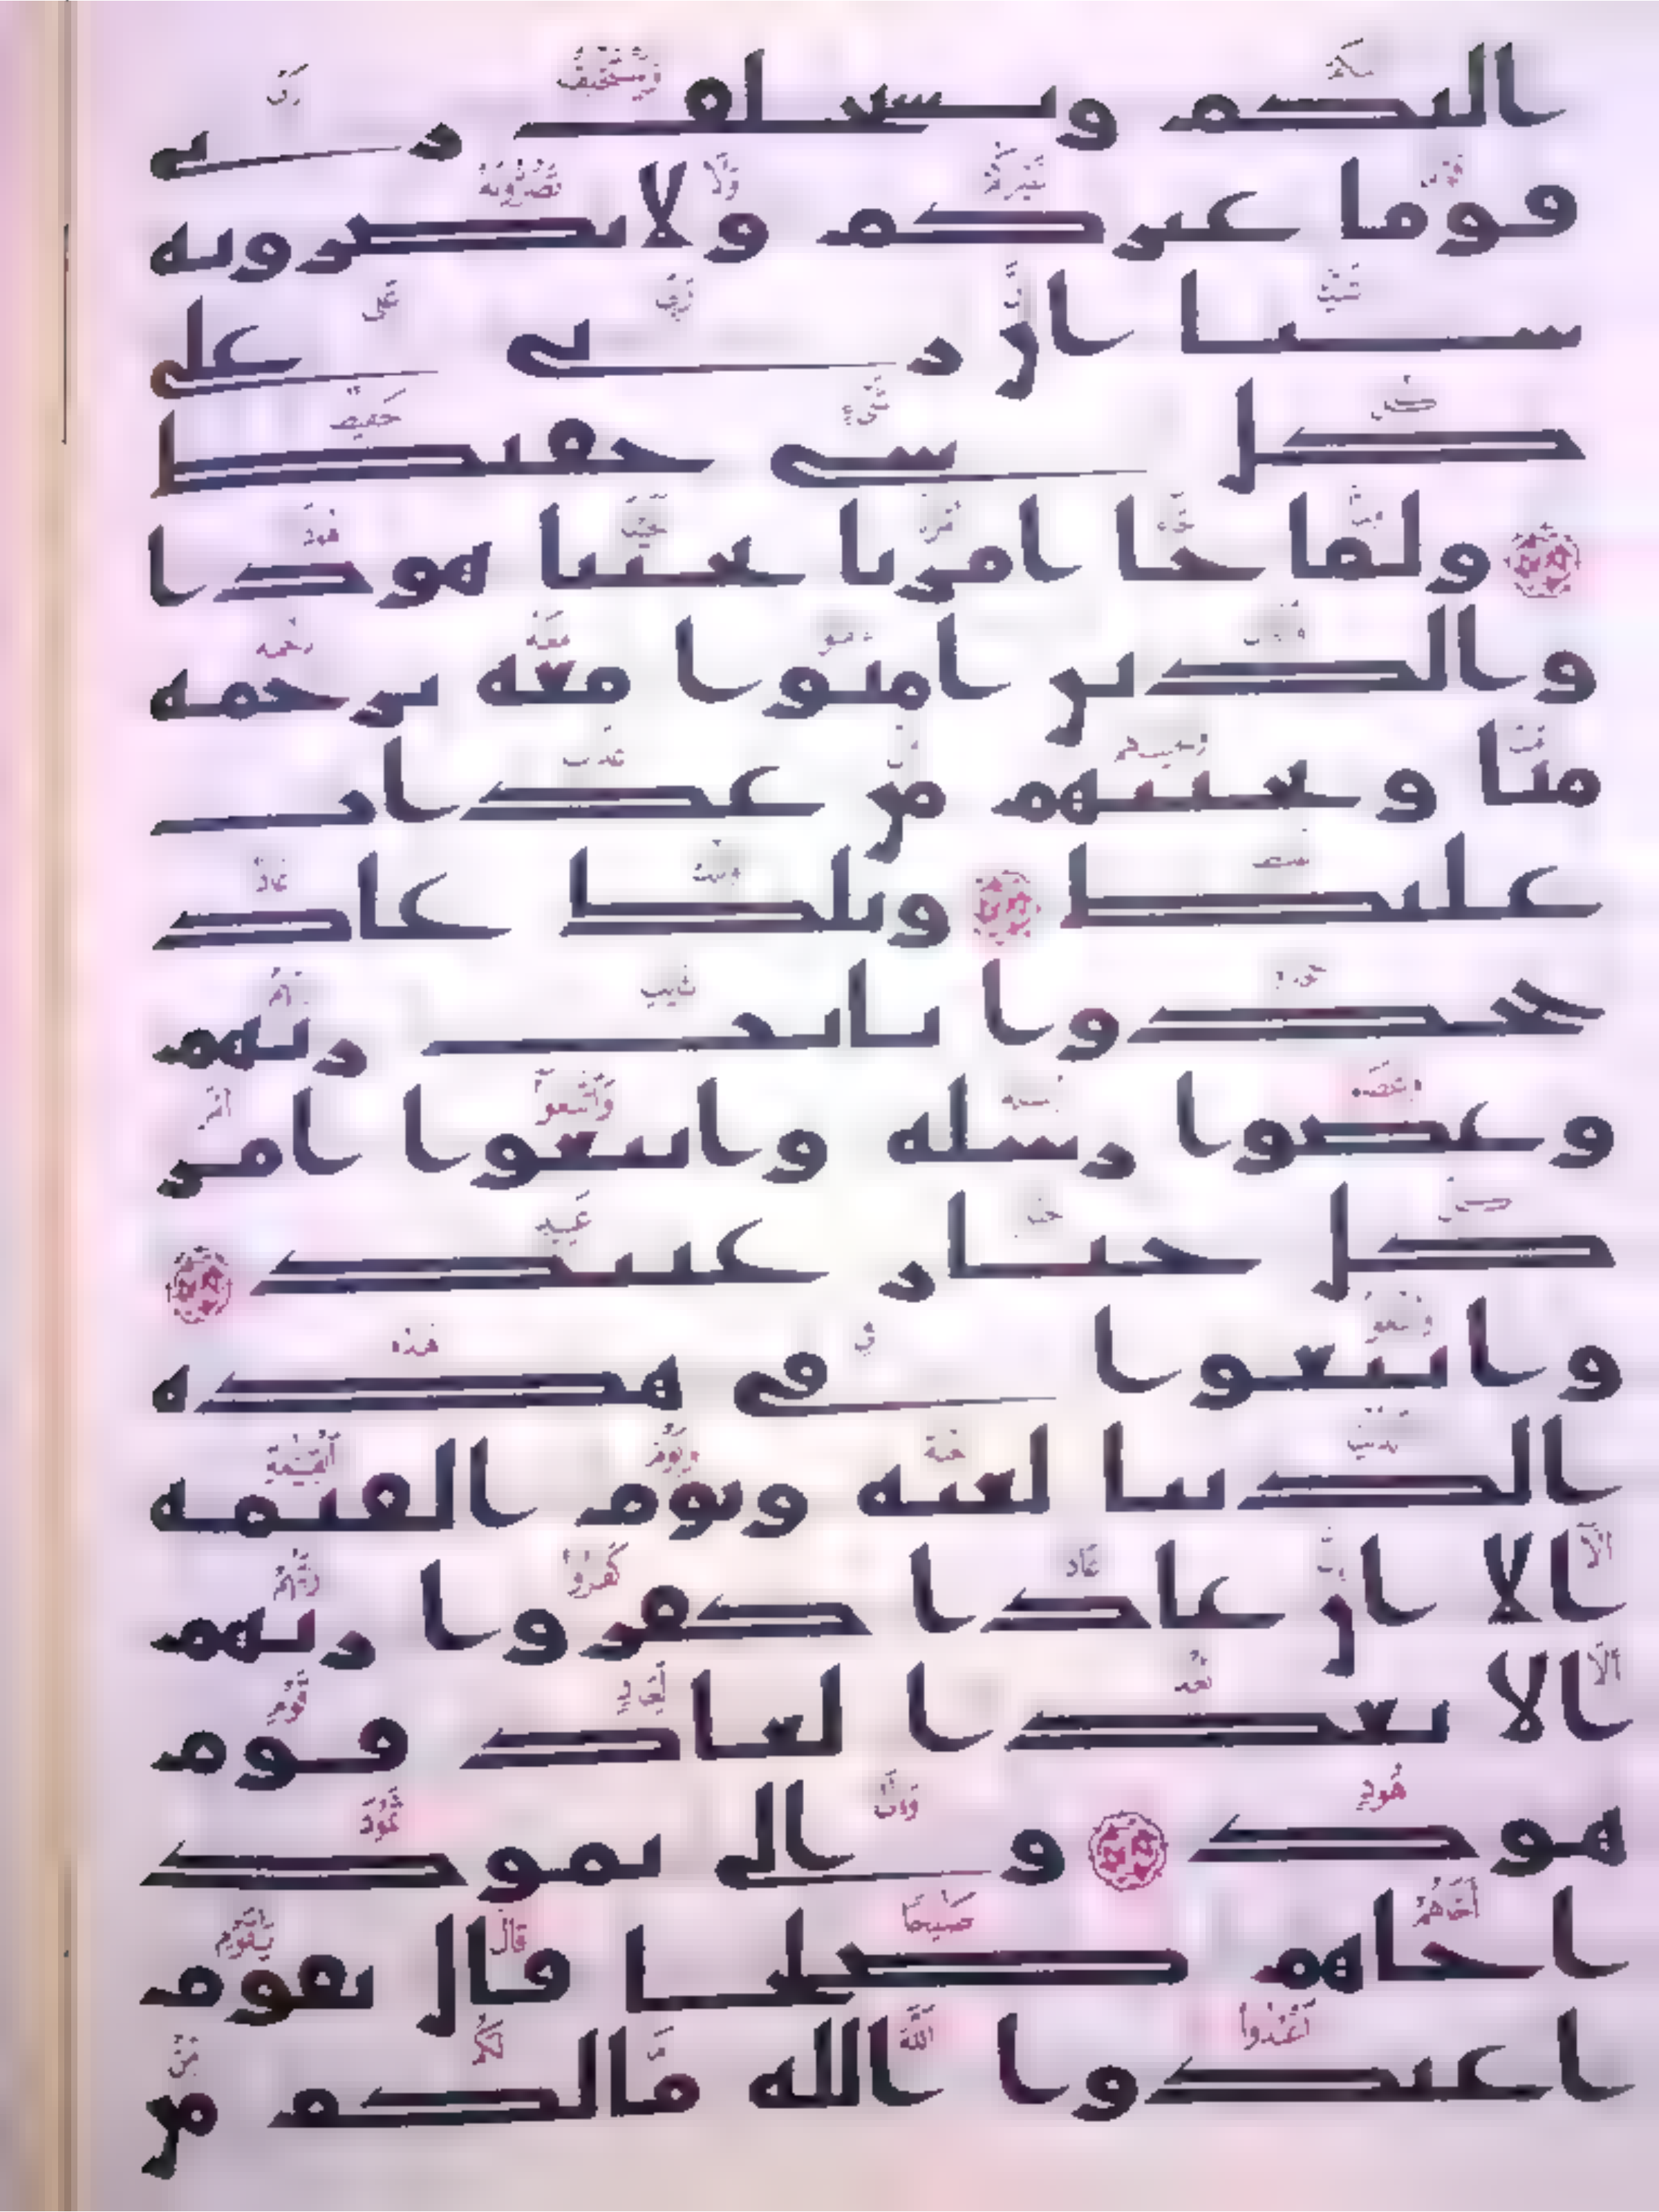 اليكم ويستخلف ربي
قوما غيركم ولا تضرونه
شيا ان ربي على
كل شي حفيظ
ولما جا امرنا نجينا هودا
والذين امنوا معه برحمه
منا ونجينهم من عذاب
غليظ وتلك عاد
جحدوا بايت ربهم
وعصوا رسله واتبعوا امر
كل جبار عنيد
واتبعوا في هذه
الدنيا لعنه ويوم القيمه
الا ان عادا كفروا ربهم
الا بعدا لعاد قوم
هود والى ثمود
اخاهم صلحا قال يقوم
اعبدوا الله ما لكم من